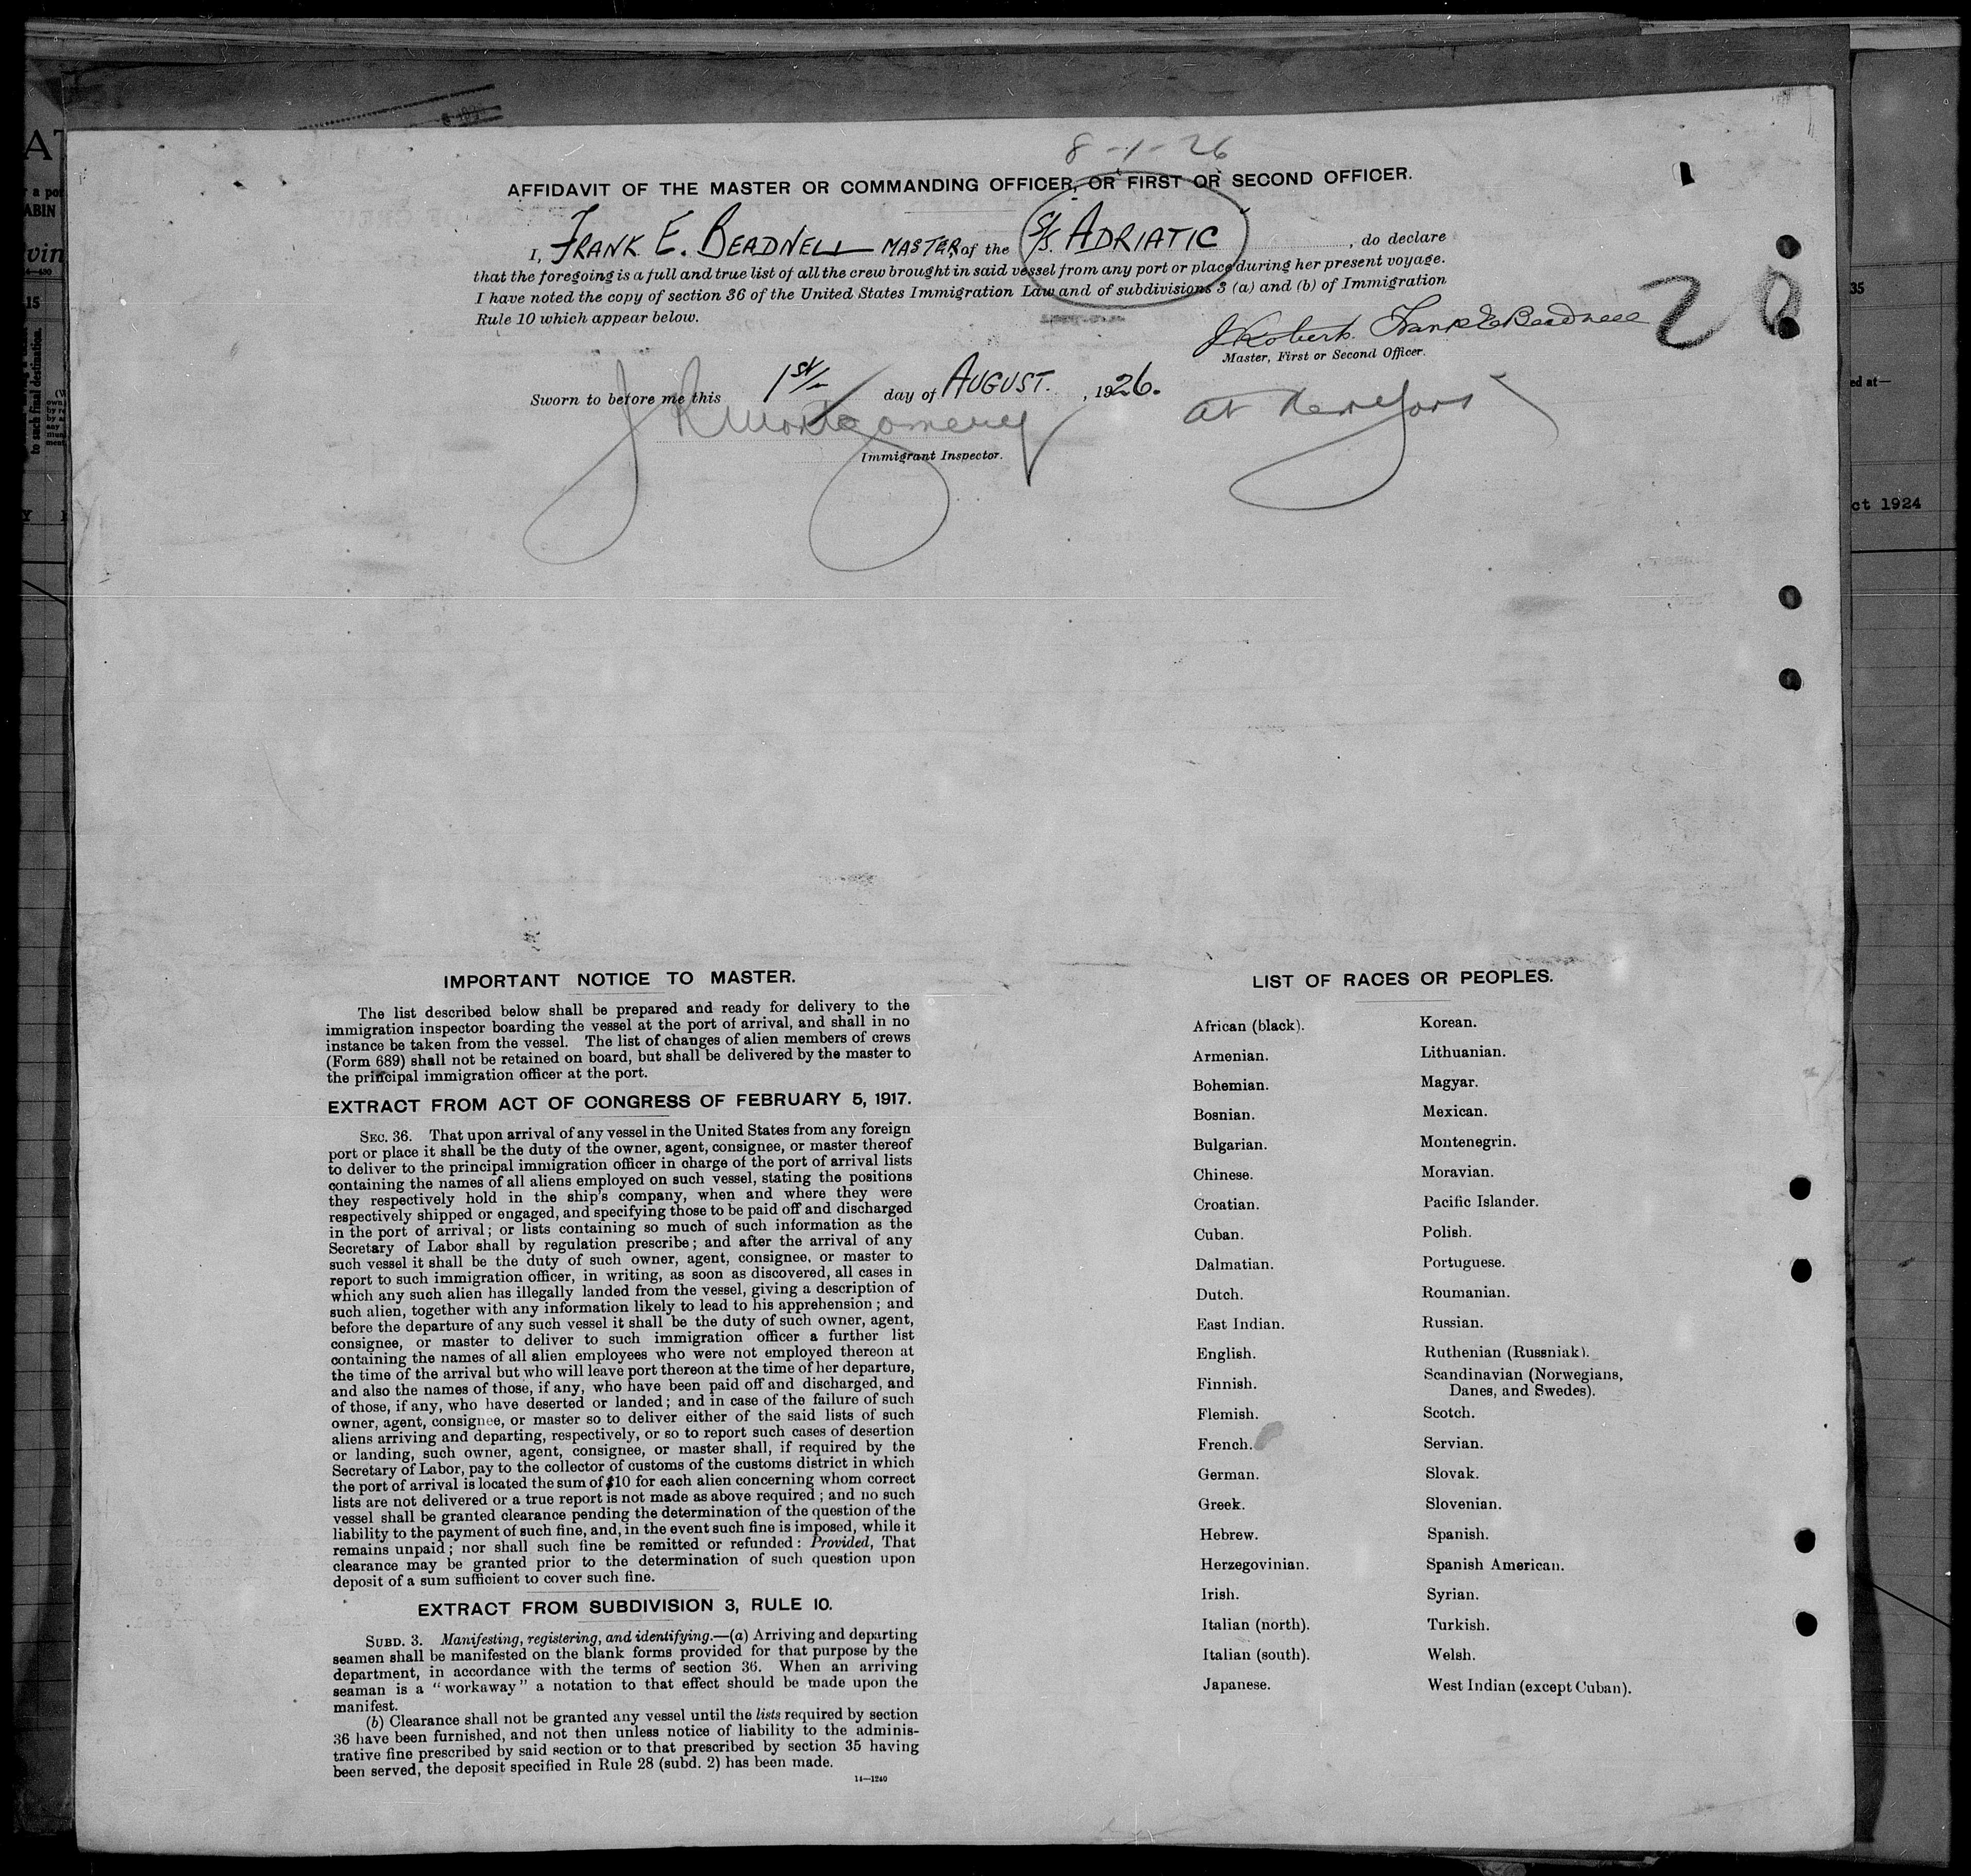 8-1-26
AFFIDAVIT OF THE MASTER OR COMMANDING OFFICER, OR FIRST OR SECOND OFFICER.
I, FRANK E. BEADNELL MASTER, of the S/S. ADRIATIC, do declare
that the foregoing is a full and true list of all the crew brought in said vessel from any port or place during her present voyage.
I have noted the copy of section 36 of the United States Immigration Law and of subdivisions 3 (a) and (b) of Immigration
Rule 10 which appear below.
Frank E Beadnell
20
Master, First or Second Officer.
Sworn to before me this 1st day of AUGUST. , 1926.
J R Montgomery
at New York
Immigrant Inspector.
IMPORTANT NOTICE TO MASTER.
The list described below shall be prepared and ready for delivery to the
immigration inspector boarding the vessel at the port of arrival, and shall in no
instance be taken from the vessel. The list of changes of alien members of crews
(Form 689) shall not be retained on board, but shall be delivered by the master to
the principal immigration officer at the port.
EXTRACT FROM ACT OF CONGRESS OF FEBRUARY 5, 1917.
SEC. 36. That upon arrival of any vessel in the United States from any foreign
port or place it shall be the duty of the owner, agent, consignee, or master thereof
to deliver to the principal immigration officer in charge of the port of arrival lists
containing the names of all aliens employed on such vessel, stating the positions
they respectively hold in the ship's company, when and where they were
respectively shipped or engaged, and specifying those to be paid off and discharged
in the port of arrival; or lists containing so much of such information as the
Secretary of Labor shall by regulation prescribe; and after the arrival of any
such vessel it shall be the duty of such owner, agent, consignee, or master to
report to such immigration officer, in writing, as soon as discovered, all cases in
which any such alien has illegally landed from the vessel, giving a description of
such alien, together with any information likely to lead to his apprehension; and
before the departure of any such vessel it shall be the duty of such owner, agent,
consignee, or master to deliver to such immigration officer a further list
containing the names of all alien employees who were not employed thereon at
the time of the arrival but who will leave port thereon at the time of her departure,
and also the names of those, if any, who have been paid off and discharged, and
of those, if any, who have deserted or landed; and in case of the failure of such
owner, agent, consignee, or master so to deliver either of the said lists of such
aliens arriving and departing, respectively, or so to report such cases of desertion
or landing, such owner, agent, consignee, or master shall, if required by the
Secretary of Labor, pay to the collector of customs of the customs district in which
the port of arrival is located the sum of $10 for each alien concerning whom correct
lists are not delivered or a true report is not made as above required; and no such
vessel shall be granted clearance pending the determination of the question of the
liability to the payment of such fine, and, in the event such fine is imposed, while it
remains unpaid; nor shall such fine be remitted or refunded: Provided, That
clearance may be granted prior to the determination of such question upon
deposit of a sum sufficient to cover such fine.
EXTRACT FROM SUBDIVISION 3, RULE 10.
SUBD. 3. Manifesting, registering, and identifying.—(a) Arriving and departing
seamen shall be manifested on the blank forms provided for that purpose by the
department, in accordance with the terms of section 36. When an arriving
seaman is a "workaway" a notation to that effect should be made upon the
manifest.
(b) Clearance shall not be granted any vessel until the lists required by section
36 have been furnished, and not then unless notice of liability to the adminis-
trative fine prescribed by said section or to that prescribed by section 35 having
been served, the deposit specified in Rule 28 (subd. 2) has been made.
14—1240
LIST OF RACES OR PEOPLES.
African (black).
Armenian.
Bohemian.
Bosnian.
Bulgarian.
Chinese.
Croatian.
Cuban.
Dalmatian.
Dutch.
East Indian.
English.
Finnish.
Flemish.
French.
German.
Greek.
Hebrew.
Herzegovinian.
Irish.
Italian (north).
Italian (south).
Japanese.
Korean.
Lithuanian.
Magyar.
Mexican.
Montenegrin.
Moravian.
Pacific Islander.
Polish.
Portuguese.
Roumanian.
Russian.
Ruthenian (Russniak).
Scandinavian (Norwegians,
Danes, and Swedes).
Scotch.
Servian.
Slovak.
Slovenian.
Spanish.
Spanish American.
Syrian.
Turkish.
Welsh.
West Indian (except Cuban).
35
ed at—
ct 1924
15
to such final destination.